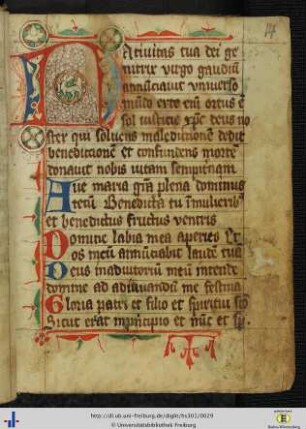 14
Natiuitas tua dei ge
nitrix virgo gaudiū
annūciauit vniuerso
mūdo ex te eni ortus ē
sol iusticie xp̄c deus no
ster qui soluens maledictionē dedit
benedictionē et confundens mortē
donauit nobis vitam sempiternam
Aue maria grā plena dominus
tecū Benedicta tu ī mulieribꝰ
et benedictus fructus ventris
Domine labia mea aperies Et
os meū annūciabit laudē tuā
Deus in adiutoriū meū intende
domine ad adiuuandū me festina
Gloria patri et filio et spiritui sc̄o
Sicut erat in principio et nūc et sp̄
http://dl.ub.uni-freiburg.de/diglit/hs301/0029
© Universitätsbibliothek Freiburg